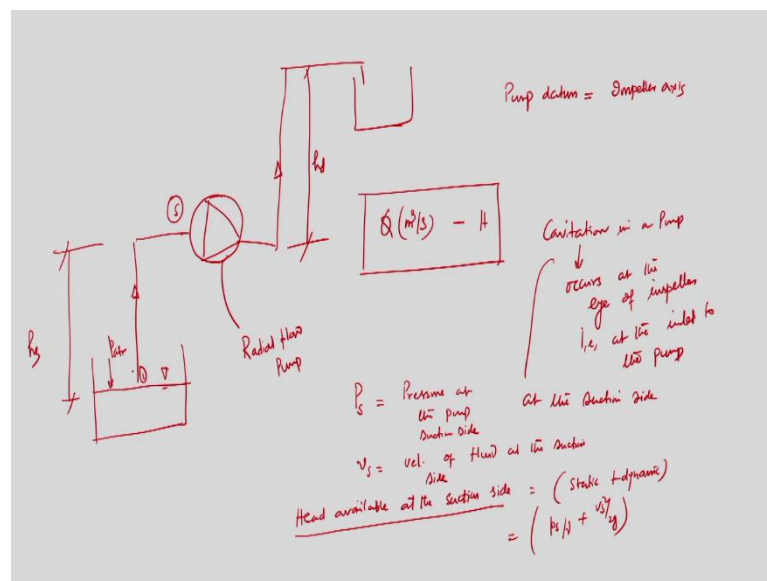 Pump datum = Impeller axis
S
hd
Q (m³/s) - H
Cavitation in a Pump
occurs at the
eye of impeller
i.e, at the inlet to
the pump
at the suction side
hs
Patm
Radial flow
Pump
Ps = Pressure at
the pump
suction side
vs = vel. of fluid at the suction
side
Head available at the suction side = (static + dynamic)
= (ps/γ + vs²/2g)